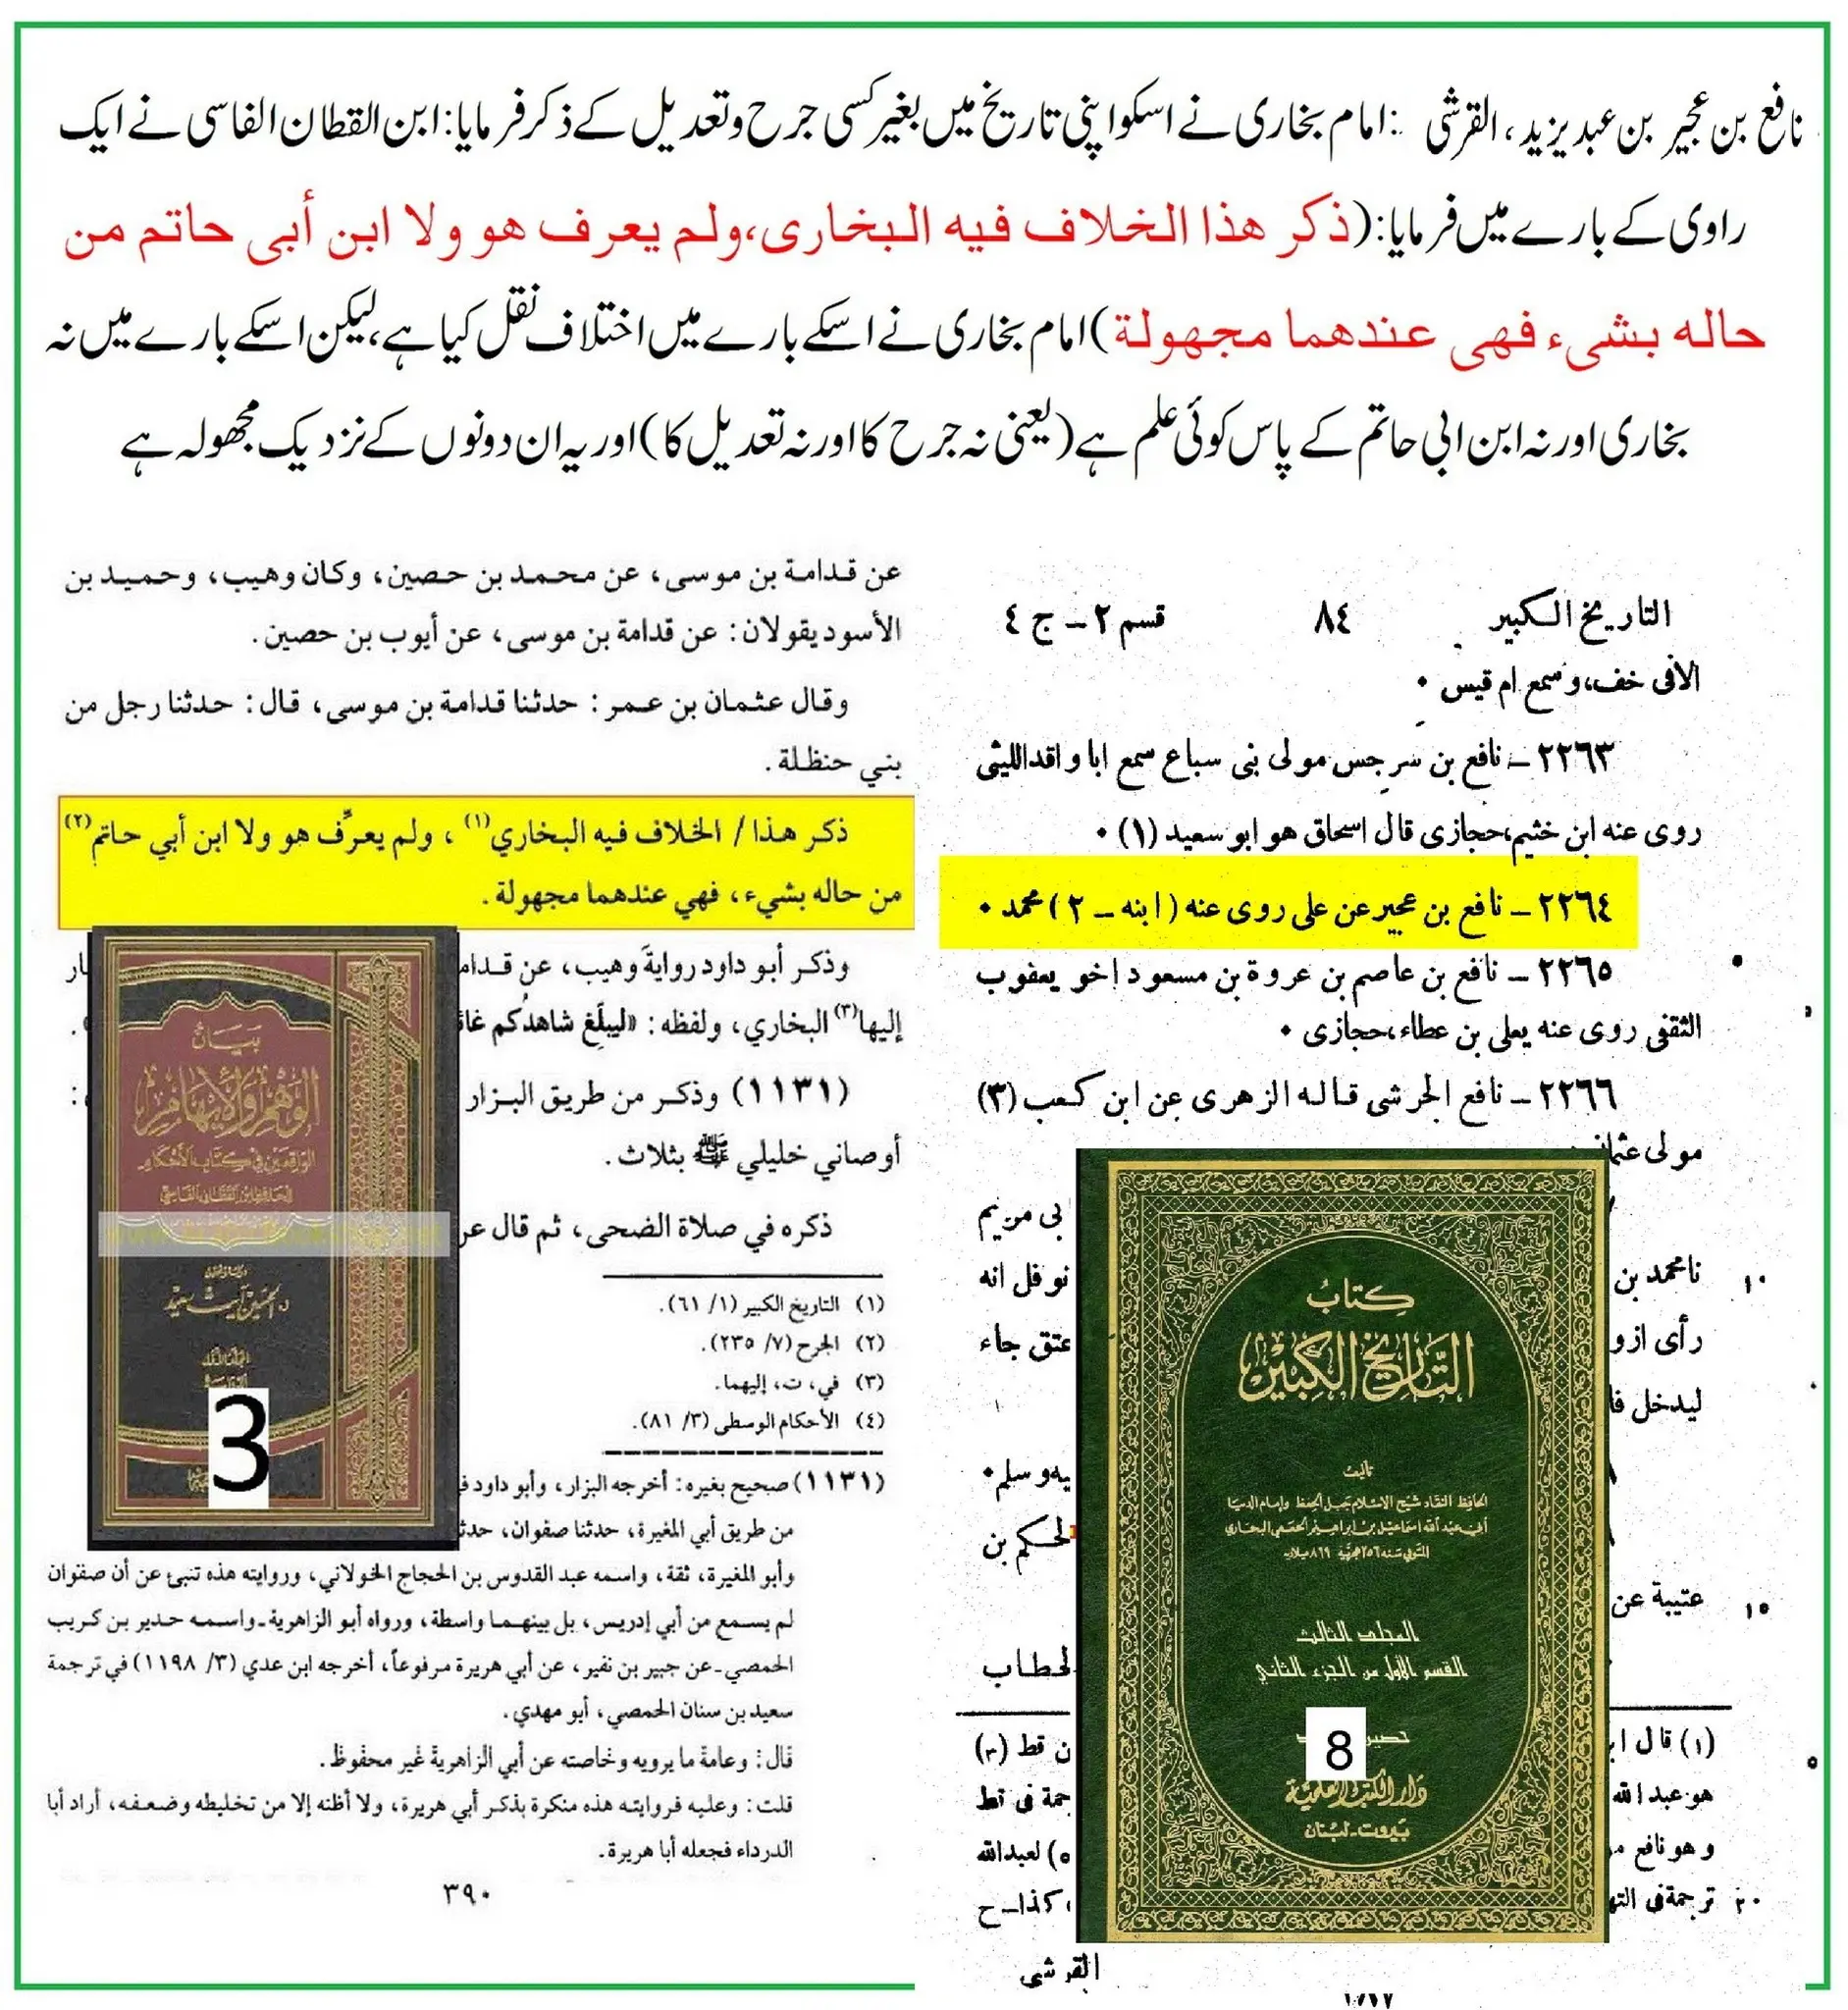 نافع بن عجیر بن عبد یزید، القرشی :امام بخاری نے اسکو اپنی تاریخ میں بغیر کسی جرح وتعدیل کے ذکر فرمایا:ابن القطان الفاسی نے ایک
راوی کے بارے میں فرمایا:(ذکر هذا الخلاف فیه البخاری،ولم یعرف هو ولا ابن أبی حاتم من
حاله بشیء فهی عندهما مجهولة)امام بخاری نے اسکے بارے میں اختلاف نقل کیا ہے،لیکن اسکے بارے میں نہ
بخاری اور نہ ابن ابی حاتم کے پاس کوئی علم ہے(یعنی نہ جرح کا اور نہ تعدیل کا)اور یہ ان دونوں کے نزدیک مجھولہ ہے
التاريخ الكبير ٨٤ قسم ٢ - ج ٤
الافى خف، وسمع ام قيس ٠
٢٢٦٣ - نافع بن سرجس مولى بنى سباع سمع ابا واقد الليثى
روى عنه ابن خثيم، حجازى قال اسحاق هو ابو سعيد (١) ٠
٢٢٦٤ - نافع بن عجير عن على روى عنه (ابنه - ٢) محمد ٠
٢٢٦٥ - نافع بن عاصم بن عروة بن مسعود اخو يعقوب
الثقفى روى عنه يعلى بن عطاء، حجازى ٠
٢٢٦٦ - نافع الجرشى قاله الزهرى عن ابن كعب (٣)
مولى
بى مريم
نا محمد بن نوفل انه
١٠
رأى عتق جاء
ليدخل
يه وسلم ٠
لحكم بن
عتيبة عن
١٥
لخطاب
(١) قال ن قط (٣)
هو عبد الله جمة فى
و هو نافع (٥) لعبدالله
ترجمة فى كذا - ح
٢٠
القرشى
كتاب
التاريخ الكبير
تأليف
الحافظ النقاد شيخ الاسلام جبل الحفظ وإمام الدنيا
أبي عبد الله اسماعيل بن ابراهيم الجعفي البخاري
المتوفى سنة ٢٥٦ هجرية ٨٦٩ ميلادية
المجلد الثالث
القسم الأول من الجزء الثاني
8
دار الكتب العلمية
بيروت - لبنان
عن قدامة بن موسى، عن محمد بن حصين، وكان وهيب، وحميد بن
الأسود يقولان: عن قدامة بن موسى، عن أيوب بن حصين.
وقال عثمان بن عمر: حدثنا قدامة بن موسى، قال: حدثنا رجل من
بني حنظلة.
ذكر هذا / الخلاف فيه البخاري(١)، ولم يعرِّف هو ولا ابن أبي حاتم(٢)
من حاله بشيء، فهي عندهما مجهولة.
وذكر أبو داود روايةَ وهيب، عن
إليها(٣) البخاري، ولفظه: «ليبلّغ شاهدُكم
(١١٣١) وذكر من طريق البزار
أوصاني خليلي ﷺ بثلاث.
ذكره في صلاة الضحى، ثم قال
(١) التاريخ الكبير (١/ ٦١).
(٢) الجرح (٧/ ٢٣٥).
(٣) في، ت، إليهما.
(٤) الأحكام الوسطى (٣/ ٨١).
(١١٣١) صحيح بغيره: أخرجه البزار، وأبو داود
من طريق أبي المغيرة، حدثنا صفوان،
وأبو المغيرة، ثقة، واسمه عبد القدوس بن الحجاج الخولاني، وروايته هذه تنبئ عن أن صفوان
لم يسمع من أبي إدريس، بل بينهما واسطة، ورواه أبو الزاهرية ـ واسمه حدير بن كريب
الحمصي ـ عن جبير بن نفير، عن أبي هريرة مرفوعاً، أخرجه ابن عدي (٣/ ١١٩٨) في ترجمة
سعيد بن سنان الحمصي، أبو مهدي.
قال: وعامة ما يرويه وخاصته عن أبي الزاهرية غير محفوظ.
قلت: وعليه فروايته هذه منكرة بذكر أبي هريرة، ولا أظنه إلا من تخليطه وضعفه، أراد أبا
الدرداء فجعله أبا هريرة.
٣٩٠
بيان
الوهم والإيهام
الواقعين في كتاب الأحكام
للحافظ ابن القطان الفاسي
دراسة وتحقيق
د. الحسين آيت سعيد
3